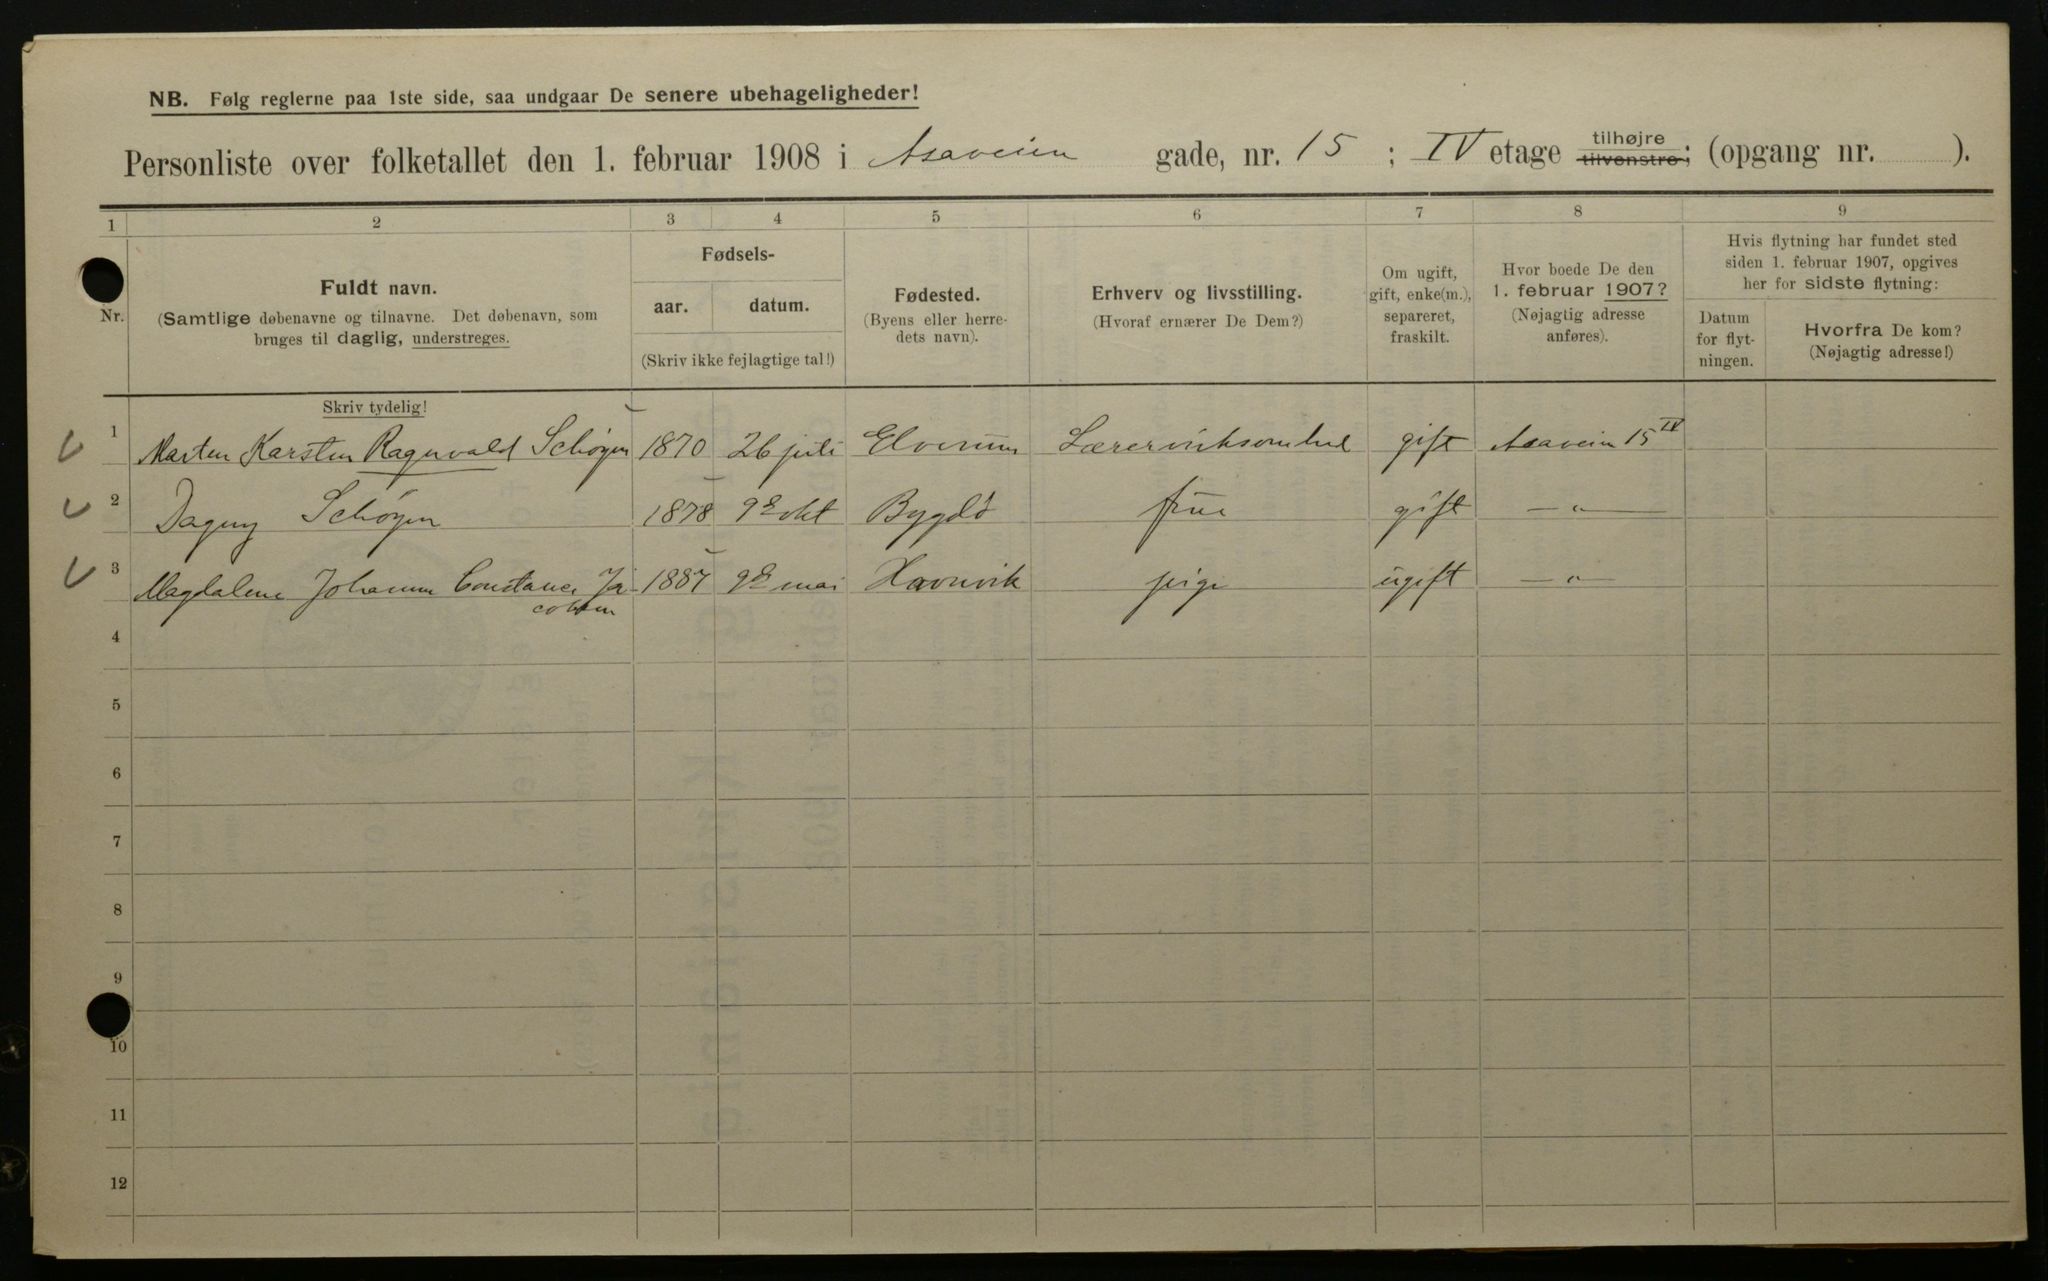 NB. Følg reglerne paa 1ste side, saa undgaar De senere ubehageligheder!
Personliste over folketallet den 1. februar 1908 i Asaveien gade, nr. 15; IV etage tilhøjre tilvenstre; (opgang nr. ).
1 2 3 4 5 6 7 8 9
Nr.
Fuldt navn.
(Samtlige døbenavne og tilnavne. Det døbenavn, som
bruges til daglig, understreges.
Skriv tydelig!
Fødsels-
aar. datum.
(Skriv ikke fejlagtige tal!)
Fødested.
(Byens eller herre-
dets navn).
Erhverv og livsstilling.
(Hvoraf ernærer De Dem?)
Om ugift,
gift, enke(m.),
separeret,
fraskilt.
Hvor boede De den
1. februar 1907?
(Nøjagtig adresse
anføres).
Hvis flytning har fundet sted
siden 1. februar 1907, opgives
her for sidste flytning:
Datum
for flyt-
ningen.
Hvorfra De kom?
(Nøjagtig adresse!)
1 Marten Karsten Ragnvald Schøyen 1870 26 juli Elverum Lærervirksomhed gift Asaveien 15 IV
2 Dagny Schøyen 1878 9de okt Bygdø frue gift — " —
3 Magdalene Johanne Constance Ja- 1887 9de mai Havnvik pige ugift — " —
cobsen
4
5
6
7
8
9
10
11
12